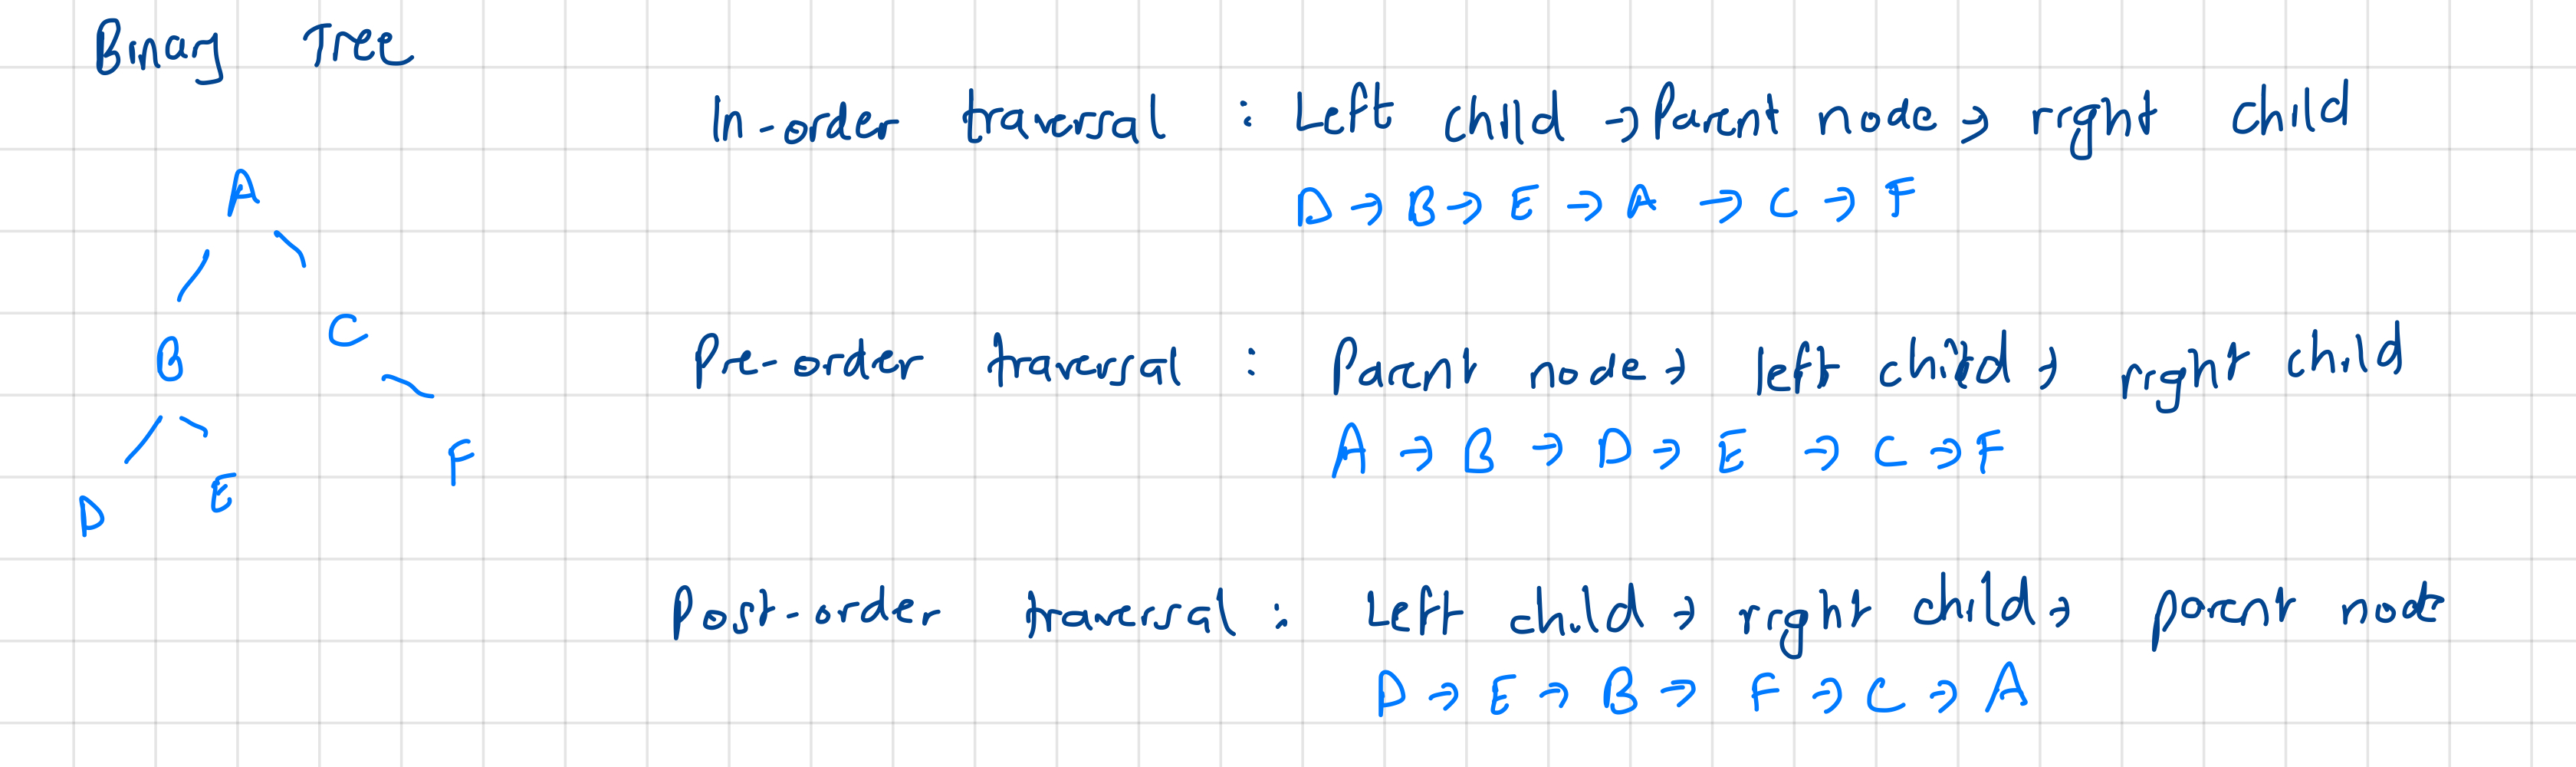 Binary Tree
In-order traversal : Left child → Parent node → right child
D → B → E → A → C → F
A
B
C
D
E
F
Pre-order traversal : Parent node → left child → right child
A → B → D → E → C → F
Post-order traversal : Left child → right child → parent node
D → E → B → F → C → A